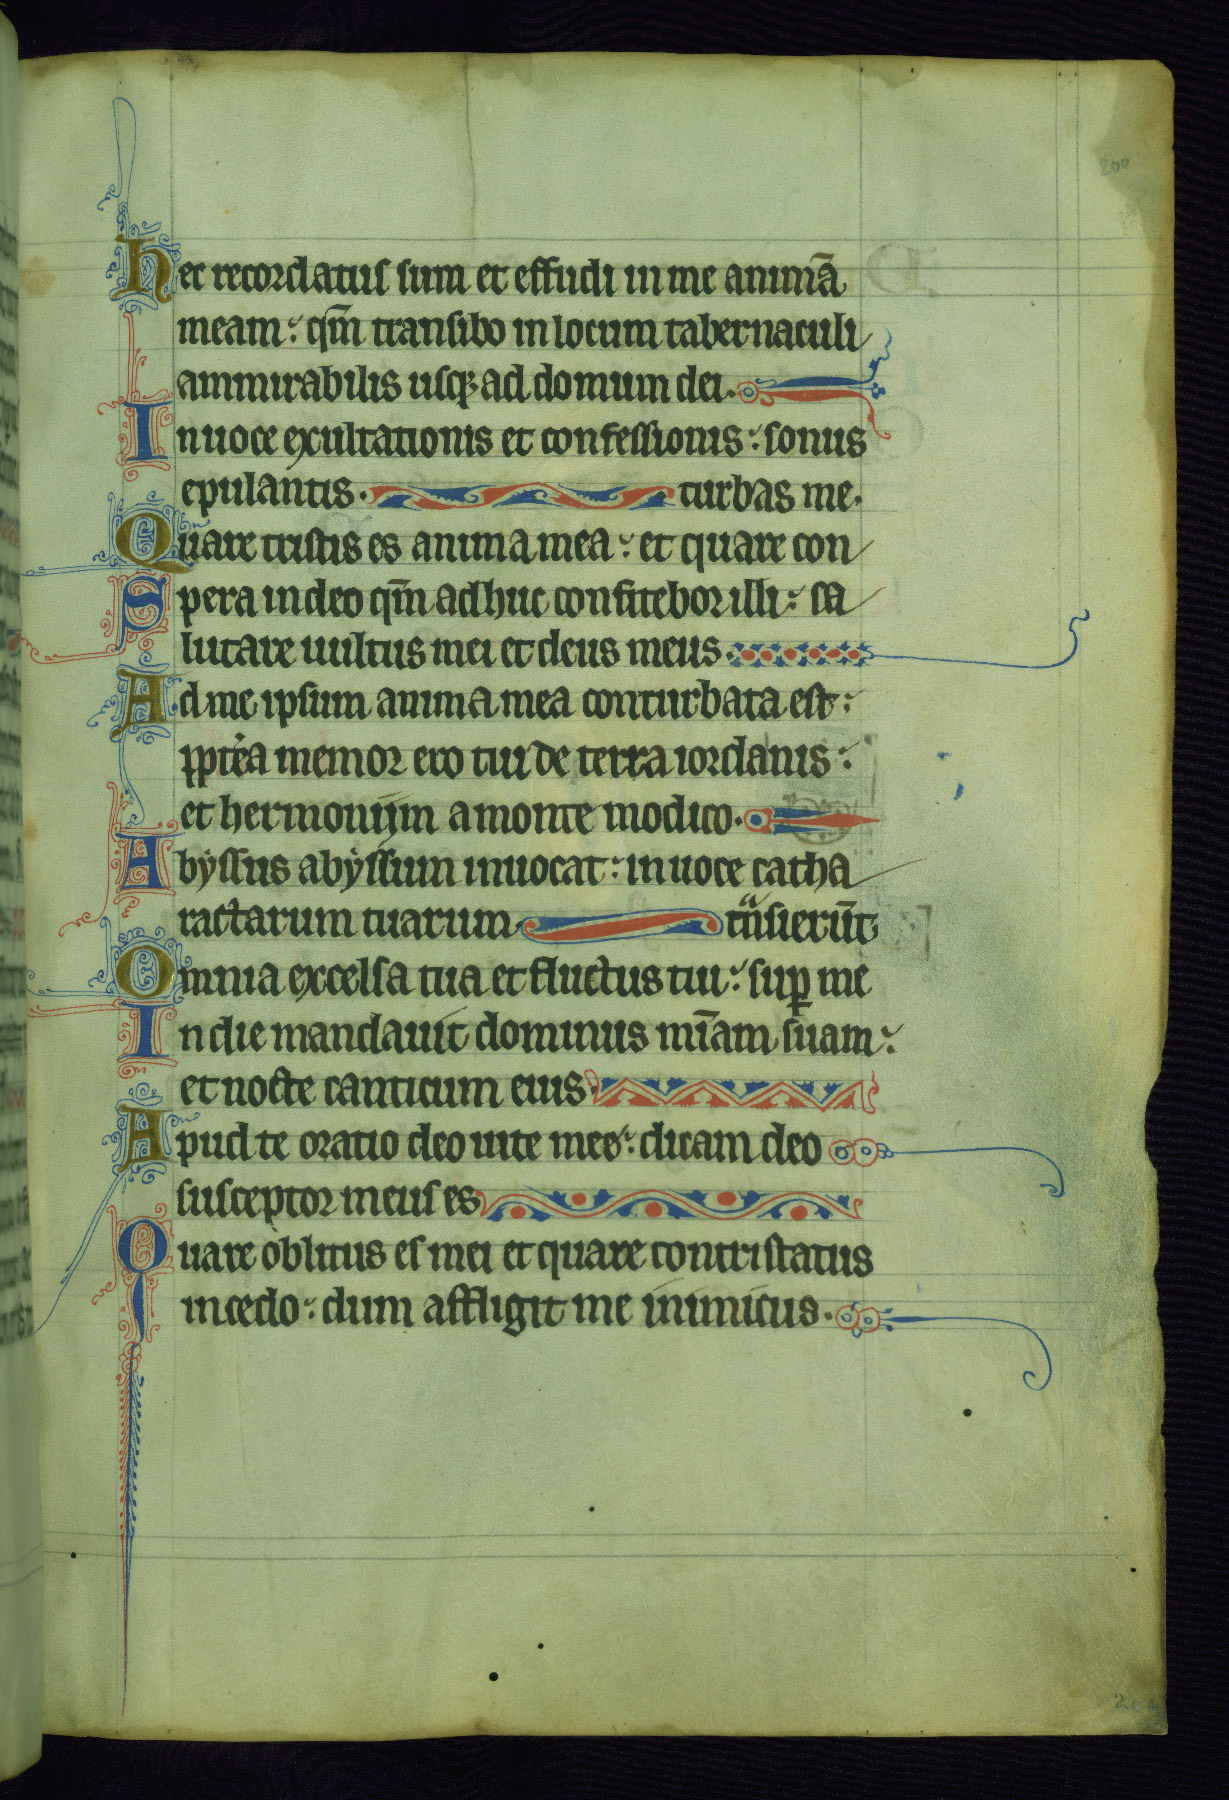 200
hec recordatus sum et effudi in me animā
meam: qm̄ transibo in locum tabernaculi
ammirabilis usqꝫ ad domum dei.
In uoce exultationis et confessionis: sonus
epulantis. turbas me.
Quare tristis es anima mea: et quare con
Spera in deo qm̄ adhuc confitebor illi: sa
lutare uultus mei et deus meus.
Ad me ipsum anima mea conturbata est:
ꝓpt̾ea memor ero tui de terra iordanis:
et hermonijm a monte modico.
Abyssus abyssum inuocat: in uoce catha
ractarum tuarum. tͣnsierūt
Omnia excelsa tua et fluctus tui: suꝑ me
In die mandauit dominus mīam suam:
et nocte canticum eius.
Apud te oratio deo uite mee: dicam deo
susceptor meus es
Quare oblitus es mei et quare contristatus
incedo: dum affligit me inimicus.